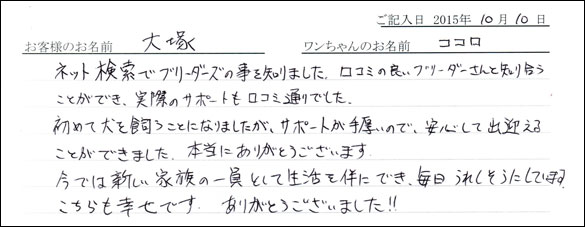 ご記入日 2015年 10月 10日
お客様のお名前 大塚 ワンちゃんのお名前 ココロ
ネット検索でブリーダーズの事を知りました。口コミの良いブリーダーさんと知り合う
ことができ、実際のサポートも口コミ通りでした。
初めて犬を飼うことになりましたが、サポートが手厚いので、安心して出迎える
ことができました。本当にありがとうございます。
今では新しい家族の一員として生活を伴にでき、毎日うれしそうにしています。
こちらも幸せです。ありがとうございました!!